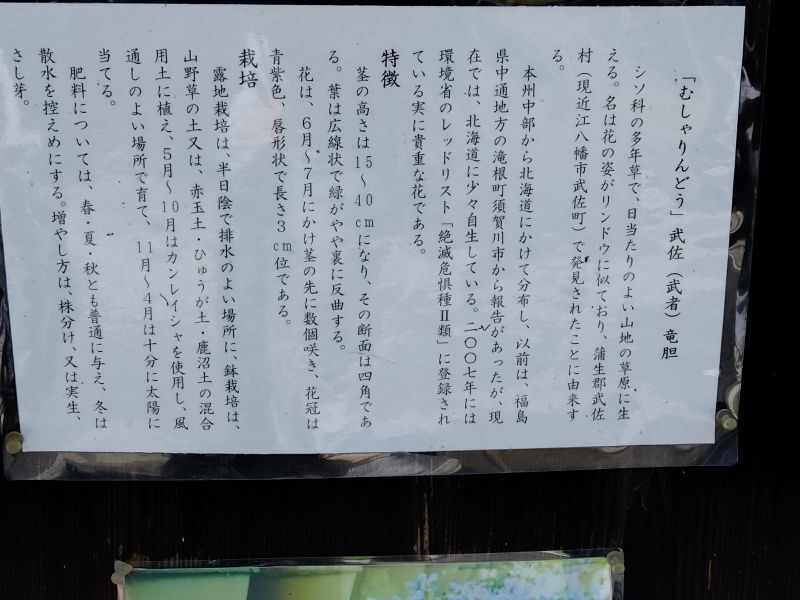 「むしゃりんどう」武佐（武者）竜胆
シソ科の多年草で、日当たりのよい山地の草原に生
える。名は花の姿がリンドウに似ており、蒲生郡武佐
村（現近江八幡市武佐町）で発見されたことに由来す
る。
本州中部から北海道にかけて分布し、以前は、福島
県中通地方の滝根町須賀川市から報告があったが、現
在では、北海道に少々自生している。二〇〇七年には
環境省のレッドリスト「絶滅危惧種Ⅱ類」に登録され
ている実に貴重な花である。
特徴
茎の高さは15～40cmになり、その断面は四角であ
る。葉は広線状で緑がやや裏に反曲する。
花は、6月～7月にかけ茎の先に数個咲き、花冠は
青紫色、唇形状で長さ3cm位である。
栽培
露地栽培は、半日陰で排水のよい場所に、鉢栽培は、
山野草の土又は、赤玉土・ひゅうが土・鹿沼土の混合
用土に植え、5月～10月はカンレイシャを使用し、風
通しのよい場所で育て、11月～4月は十分に太陽に
当てる。
肥料については、春・夏・秋とも普通に与え、冬は
散水を控えめにする。増やし方は、株分け、又は実生、
さし芽。